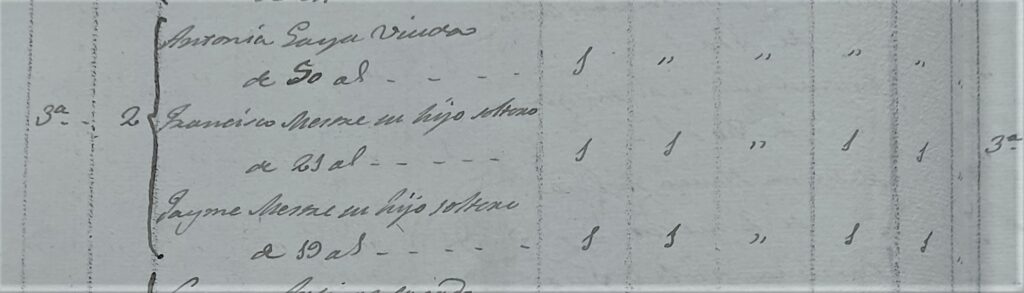 Antonia Gaya Viuda
de 50 a.s - - - - 1 " " " "
3.a - 2 Francisco Mestre su hijo soltero
de 21 a.s - - - - - 1 1 " 1 1 3.a
Jayme Mestre su hijo soltero
de 19 a.s - - - - - 1 1 " 1 1